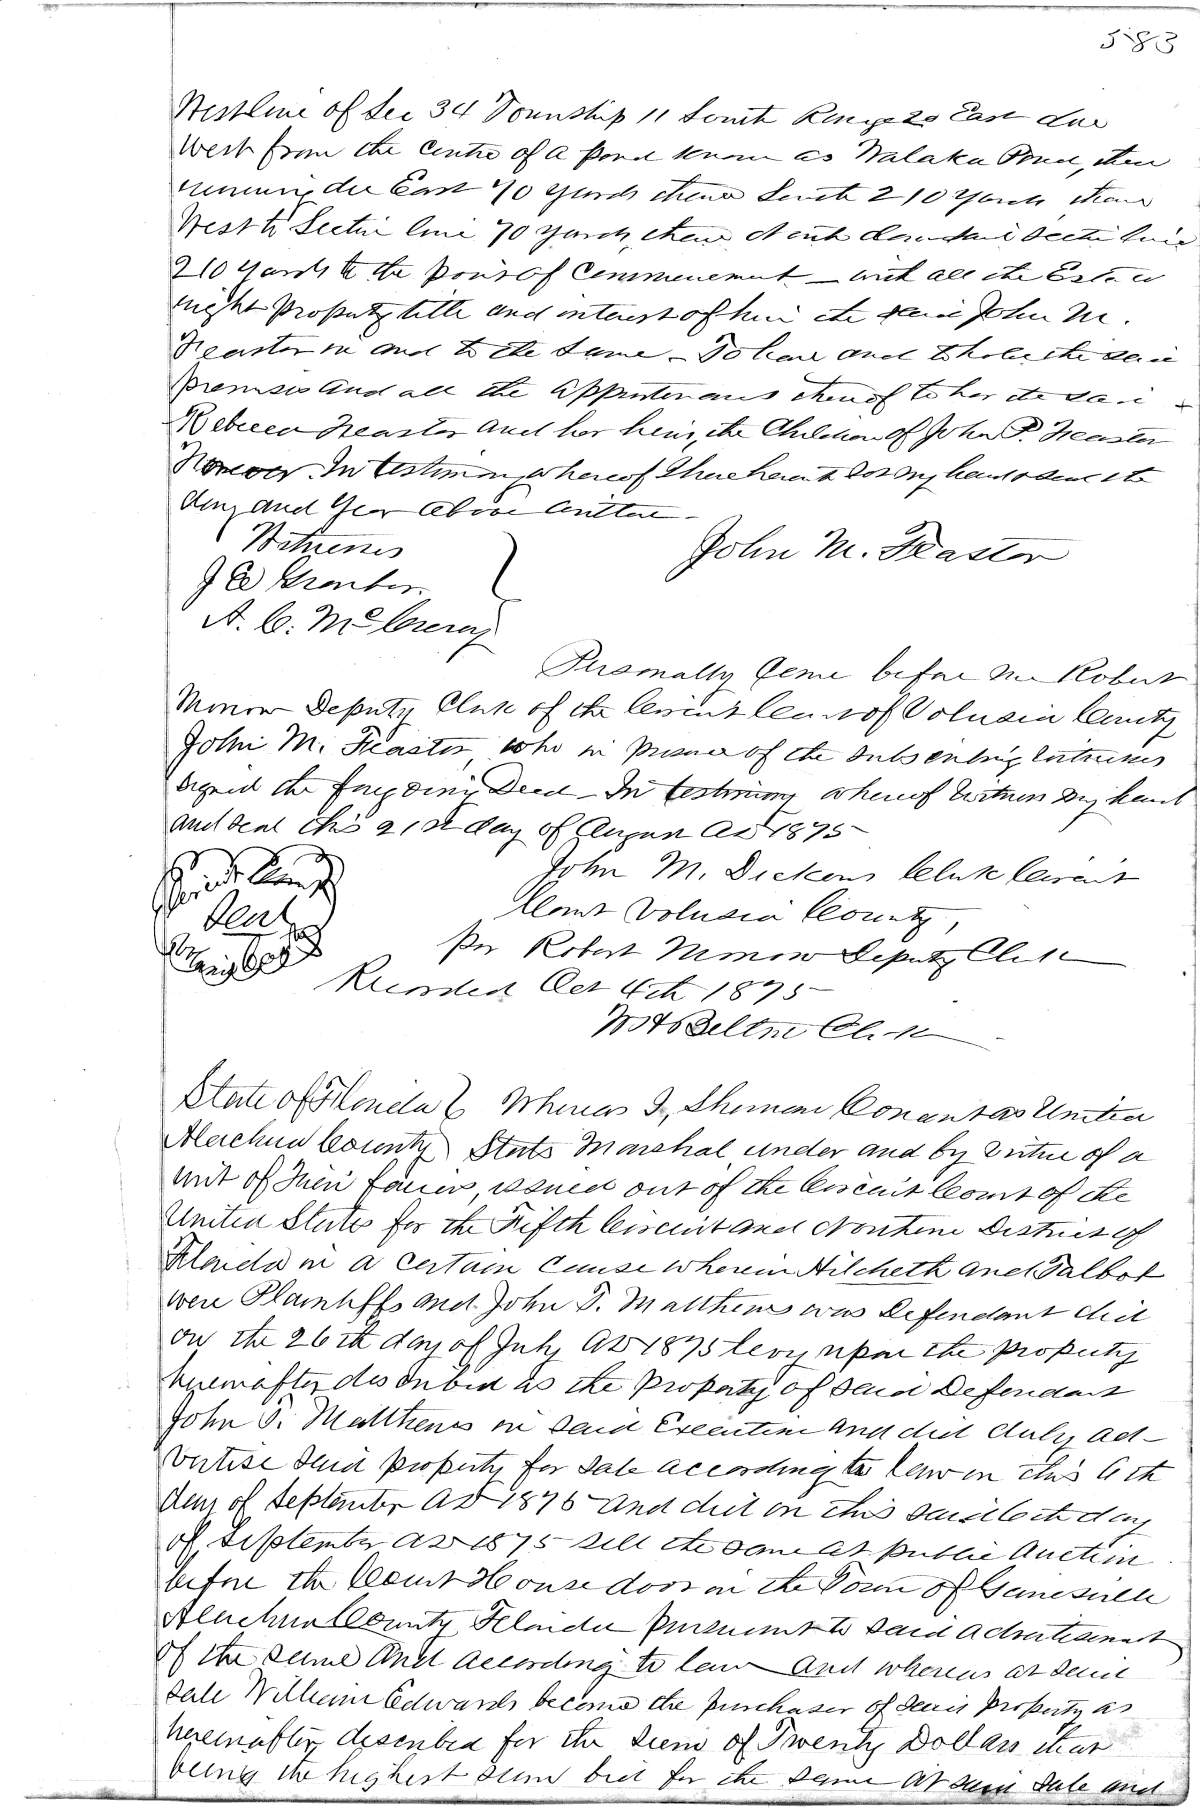 583
West line of Sec 34 Township 11 South Range 20 East due
West from the centre of a pond known as Walaka Pond, then
running due East 70 yards thence South 210 yards thence
West to Section line 70 yards, thence North down said Section line
210 yards to the point of Commencement – with all the Estate
right property title and interest of him the said John M.
Feaster in and to the same – To have and to hold the said
premises and all the appurtenances thereof to her the said
Rebecca Feaster and her heirs, the Children of John P. Feaster
forever. In testimony whereof I have hereunto set my hand & seal the
day and year above written –
Witnesses
John M. Feaster
A. C. McCreery
Personally Came before me Robert
Morrow Deputy Clerk of the Circuit Court of Volusia County
John M. Feaster, who in presence of the subscribing witnesses
signed the foregoing Deed – In testimony whereof witness my hand
and seal this 21st day of August AD 1875
Seal
John M. Dickens Clerk Circuit
Court Volusia County,
per Robert Morrow Deputy Clerk
Recorded Oct 4th 1875
Clerk
State of Florida } Whereas I, Sherman Conant as United
Alachua County } States Marshal, under and by virtue of a
writ of Fieri facias, issued out of the Circuit Court of the
United States for the Fifth Circuit and Northern District of
Florida in a certain cause wherein Hilcheth and Talbot
were Plaintiffs and John T. Matthews was Defendant did
on the 26th day of July AD 1875 levy upon the property
hereinafter described as the property of said Defendant
John T. Matthews in said Execution and did duly ad-
vertise said property for sale according to law on this 6th
day of September AD 1875 and did on this said 6th day
of September AD 1875 sell the same at public Auction
before the Court House door in the Town of Gainesville
Alachua County Florida pursuant to said advertisement
of the same and according to law and whereas at said
sale William Edwards became the purchaser of said property as
hereinafter described for the sum of Twenty Dollars that
being the highest sum bid for the same at said sale and